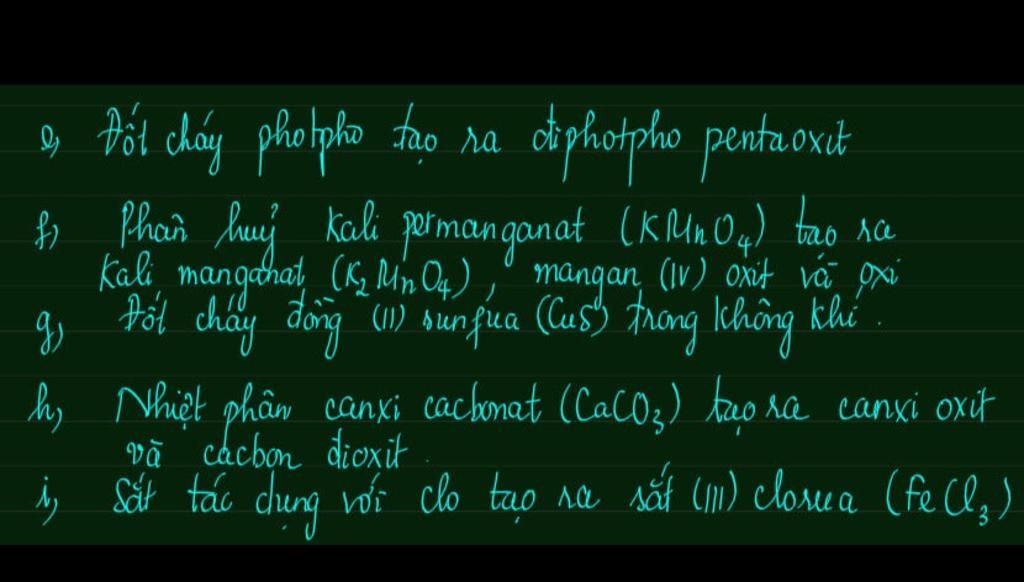 e, Đốt cháy photpho tạo ra điphotpho pentaoxit
f, Phân huỷ Kali permanganat (KMnO₄) tạo ra
Kali manganat (K₂MnO₄), mangan (IV) oxit và oxi
g, Đốt cháy đồng (II) sunfua (CuS) trong không khí.
h, Nhiệt phân canxi cacbonat (CaCO₃) tạo ra canxi oxit
và cacbon đioxit.
i, Sắt tác dụng với clo tạo ra sắt (III) clorua (FeCl₃)